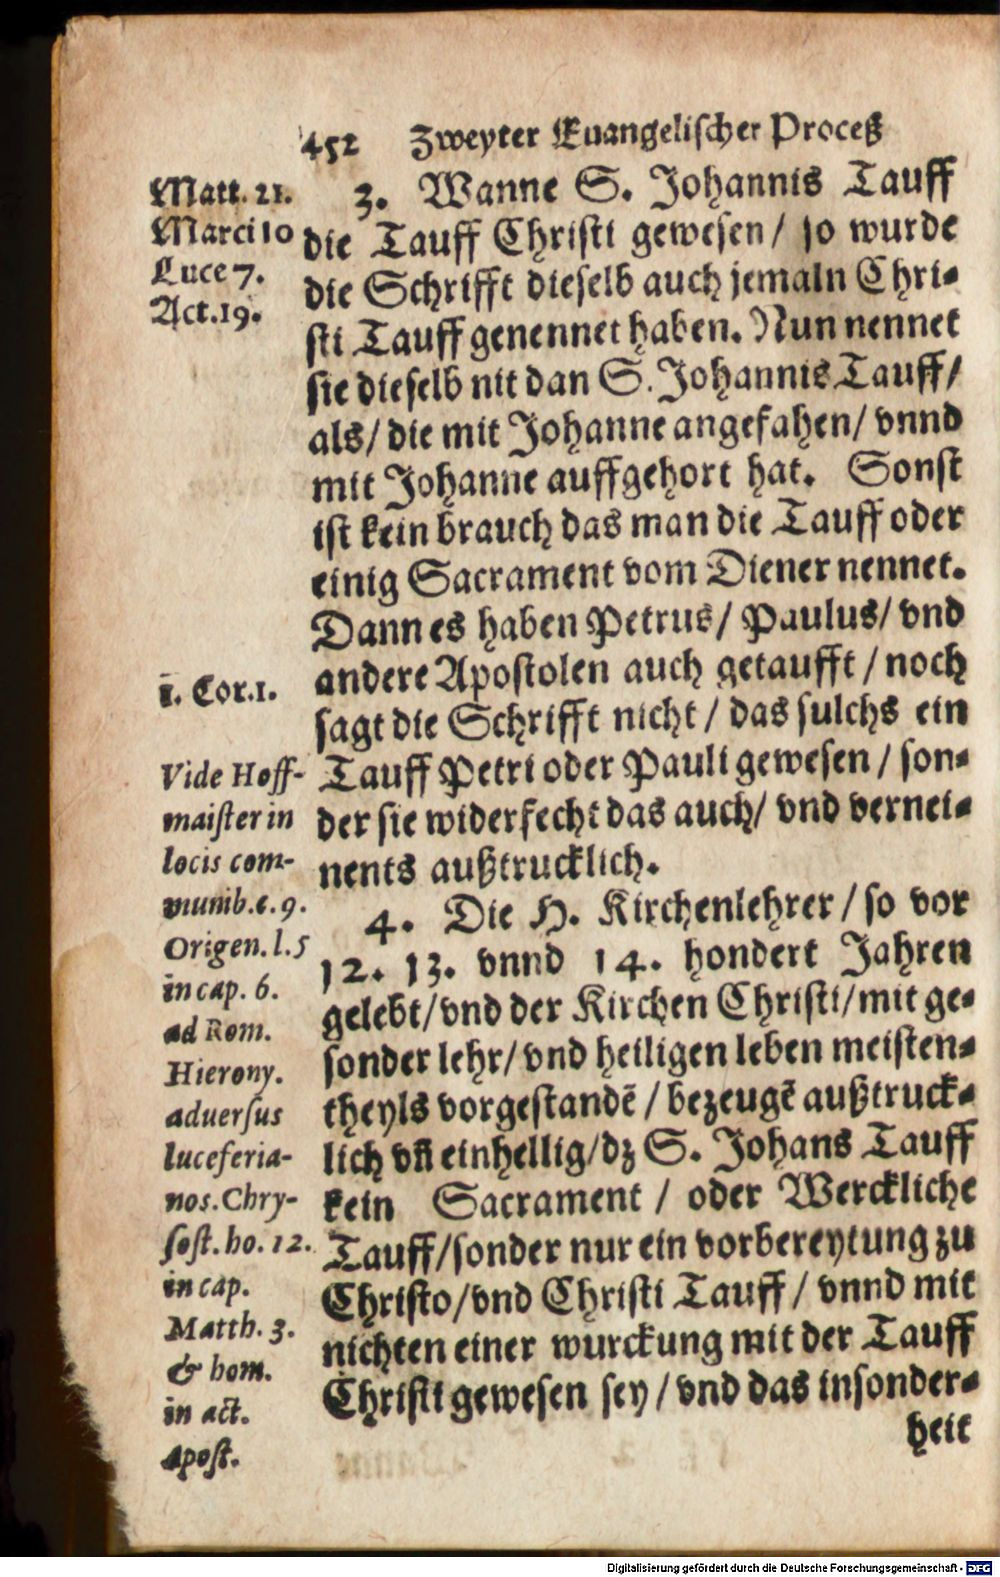 452 Zweyter Euangelischer Proceß
Matt. 21.
Marci 10
Luce 7.
Act. 19.
3. Wanne S. Johannis Tauff
die Tauff Christi gewesen / so wurde
die Schrifft dieselb auch jemaln Chri-
sti Tauff genennet haben. Nun nennet
sie dieselb nit dan S. Johannis Tauff /
als / die mit Johanne angefahen / vnnd
mit Johanne auffgehort hat. Sonst
ist kein brauch das man die Tauff oder
einig Sacrament vom Diener nennet.
Dann es haben Petrus / Paulus / vnd
andere Apostolen auch getaufft / noch
sagt die Schrifft nicht / das sulchs ein
Tauff Petri oder Pauli gewesen / son-
der sie widerfecht das auch / vnd vernei-
nents außtrucklich.
1. Cor. 1.
Vide Hoff-
maister in
locis com-
munib. c. 9.
Origen. l. 5
in cap. 6.
ad Rom.
Hierony.
aduersus
luceferia-
nos. Chry-
sost. ho. 12.
in cap.
Matth. 3.
& hom.
in act.
Apost.
4. Die H. Kirchenlehrer / so vor
12. 13. vnnd 14. hondert Jahren
gelebt / vnd der Kirchen Christi / mit ge-
sonder lehr / vnd heiligen leben meisten-
theyls vorgestandē / bezeugē außtruck-
lich vñ einhellig / dz S. Johans Tauff
kein Sacrament / oder Werckliche
Tauff / sonder nur ein vorbereytung zu
Christo / vnd Christi Tauff / vnnd mit
nichten einer wurckung mit der Tauff
Christi gewesen sey / vnd das insonder-
heit
Digitalisierung gefördert durch die Deutsche Forschungsgemeinschaft - DFG